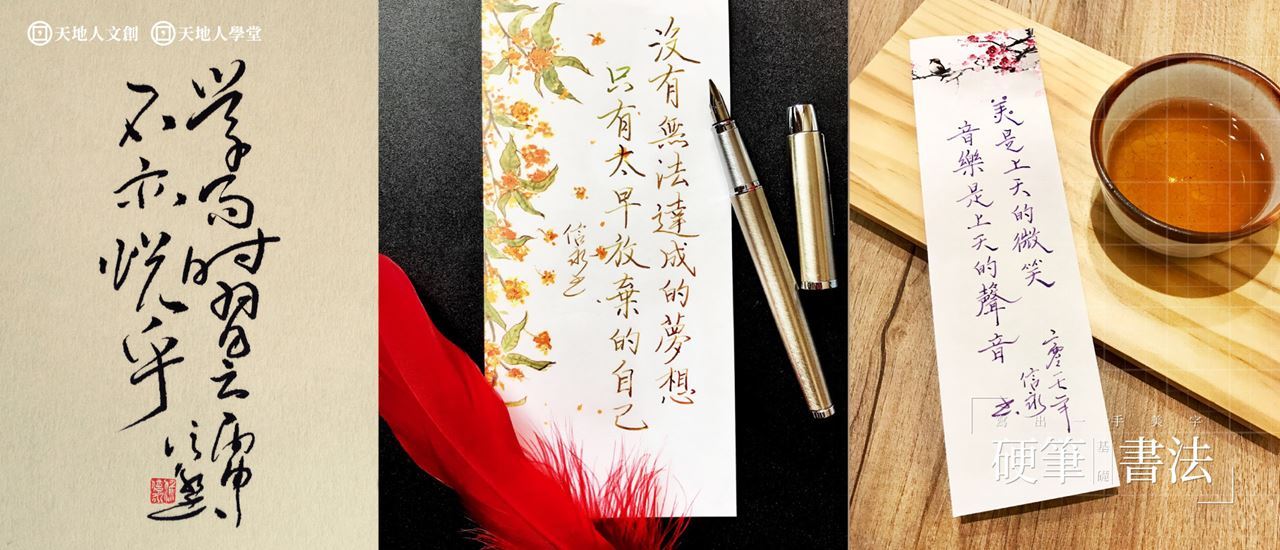 天地人文創
天地人學堂
學而時習之
不亦悅乎
沒有無法達成的夢想
只有太早放棄的自己
信永書
美是上天的微笑
音樂是上天的聲音
信永
書
寫出一手美字
硬筆基礎書法